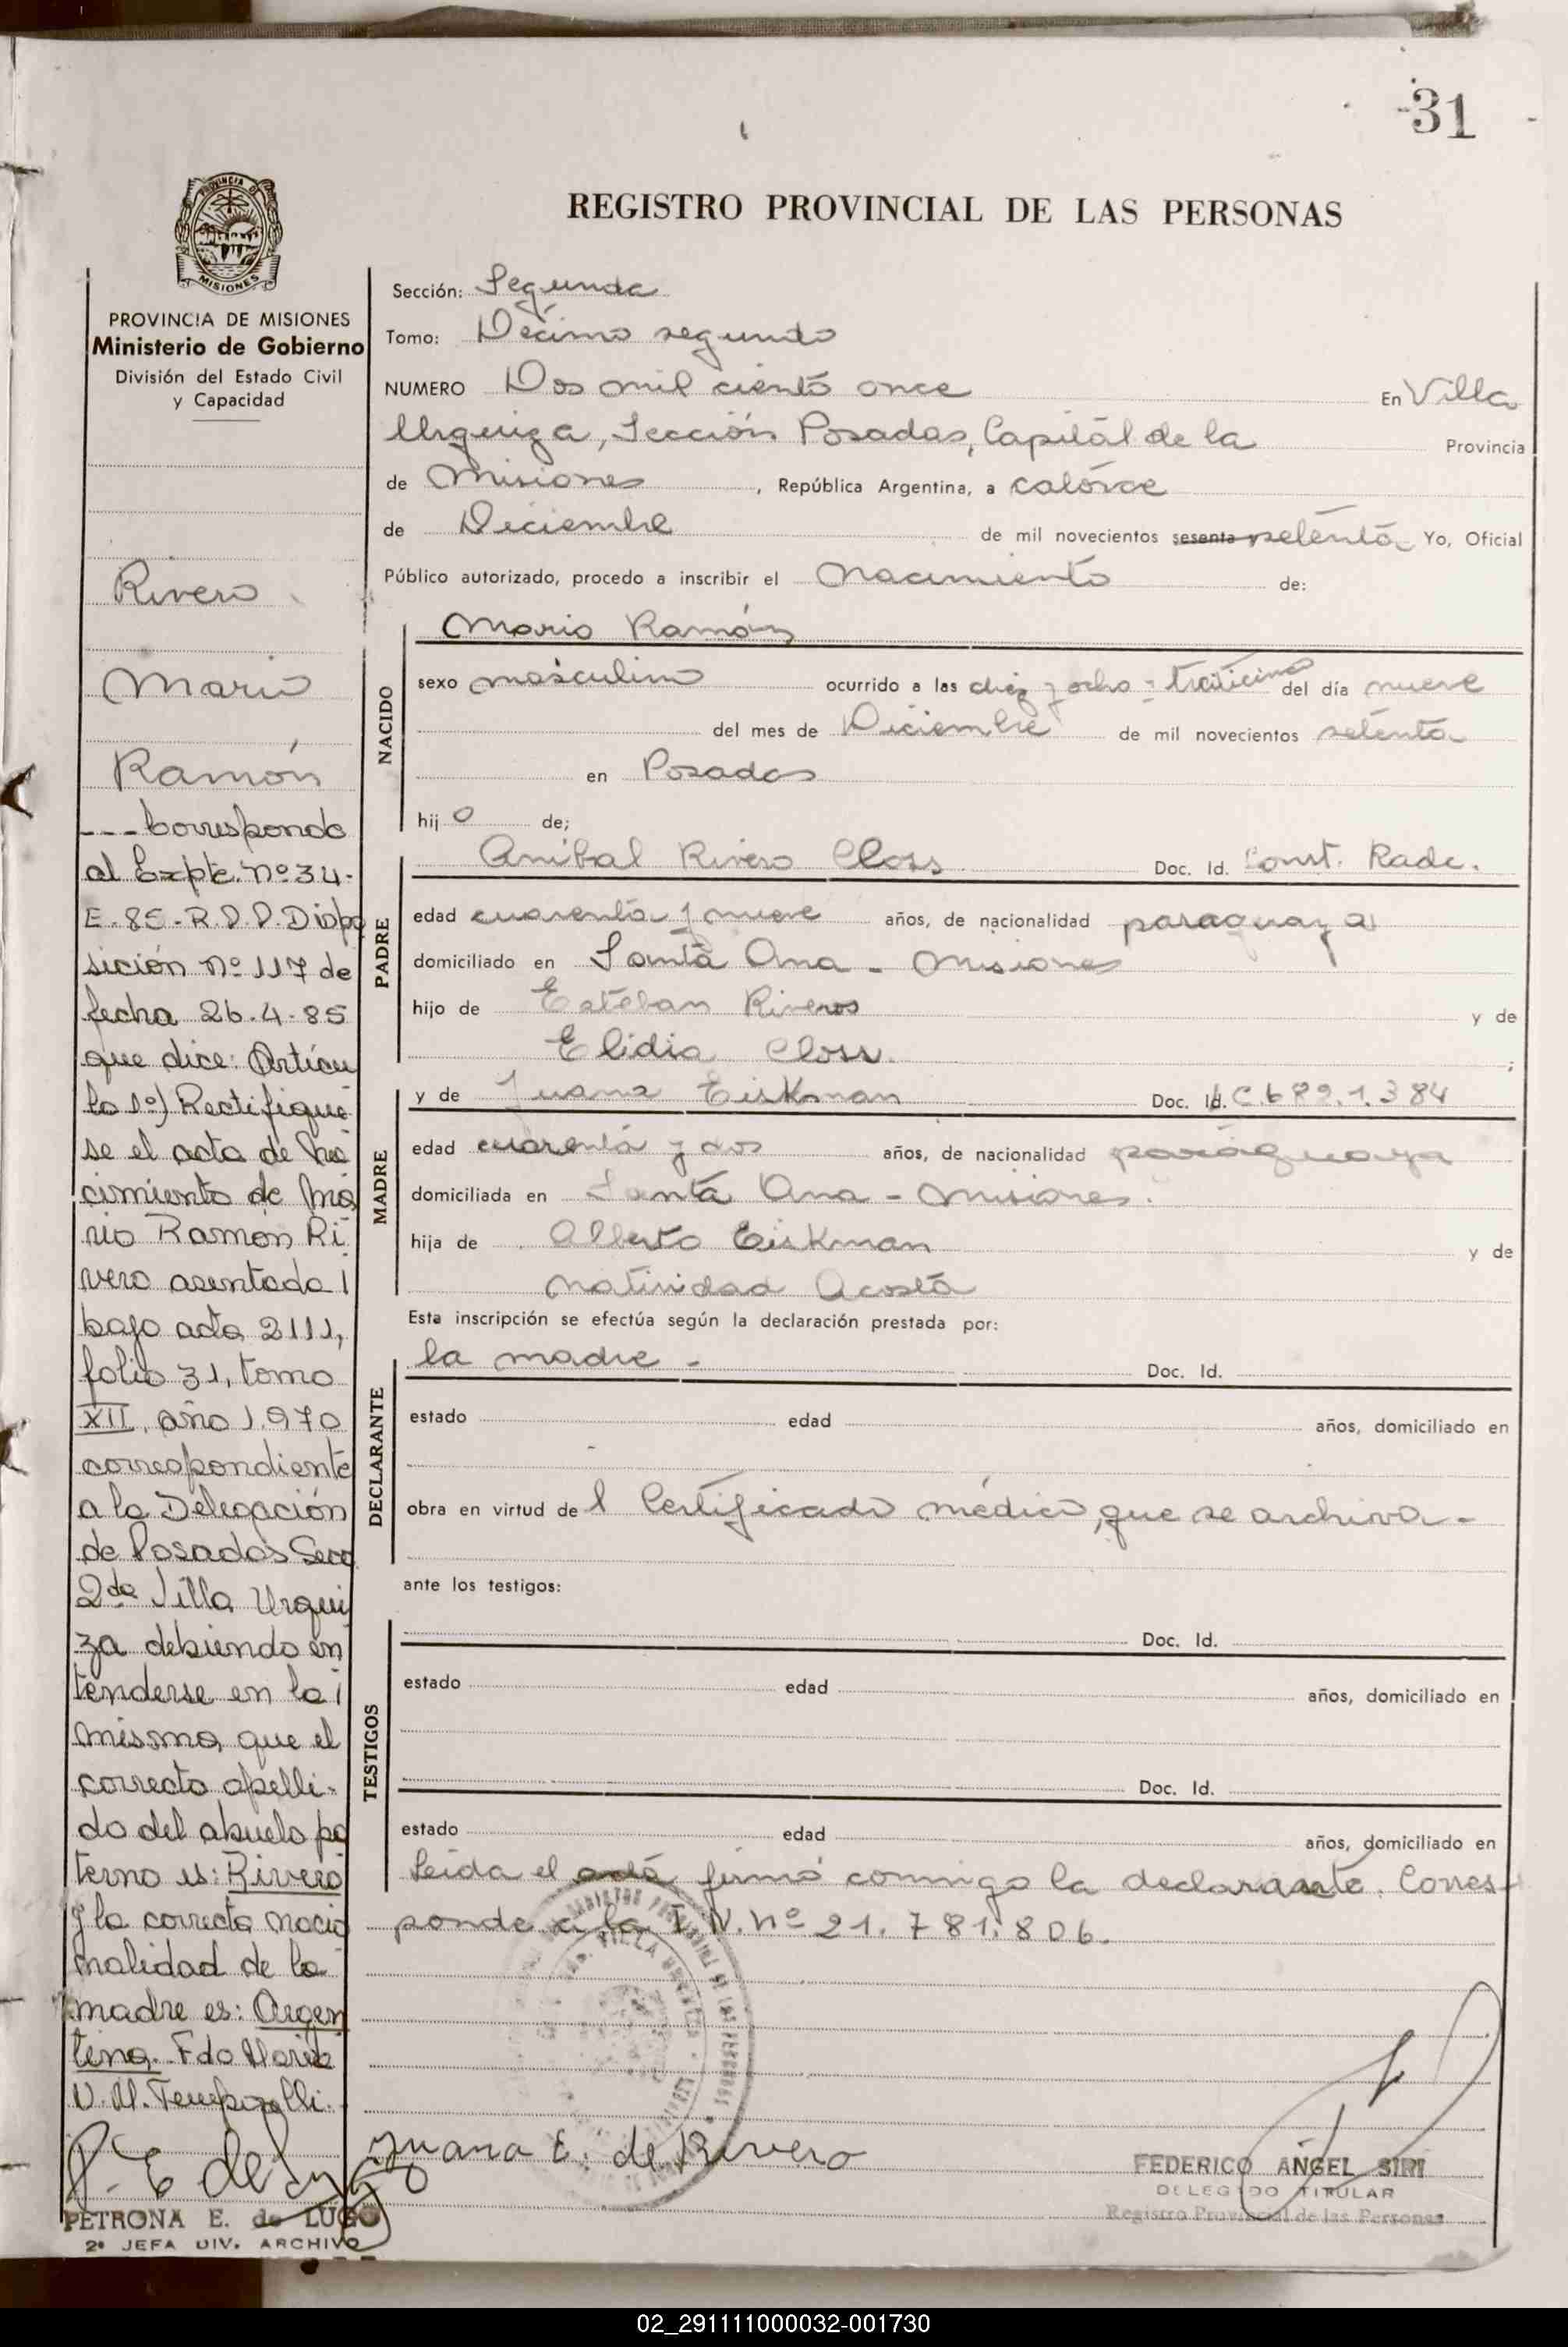 -31
PROVINCIA DE
MISIONES
REGISTRO PROVINCIAL DE LAS PERSONAS
PROVINCIA DE MISIONES
Ministerio de Gobierno
División del Estado Civil
y Capacidad
Rivero
Mario
Ramón
---Corresponde
al Expte. nº 34-
E-85-R.P.P. Dispo
sición nº 117 de
fecha 26-4-85
que dice: Artícu
lo 1º) Rectifíque
se el acta de Na
cimiento de Ma
rio Ramón Ri
vero asentada
bajo acta 2111,
folio 31, tomo
XII, año 1.970
correspondiente
a la Delegación
de Posadas Secc
2da Villa Urqui
za debiendo en
tenderse en la
misma, que el
correcto apelli-
do del abuelo pa
terno es: Rivero
y la correcta nacio
nalidad de la
madre es: Argen
tina. Fdo María
PETRONA E. de LUGO
2ª JEFA DIV. ARCHIVO
Sección: Segunda
Tomo: Décimo segundo
NUMERO Dos mil ciento once En Villa
Urquiza, Sección Posadas, Capital de la Provincia
de Misiones, República Argentina, a catorce
de Diciembre de mil novecientos sesenta setenta Yo, Oficial
Público autorizado, procedo a inscribir el nacimiento de:
NACIDO
Mario Ramón
sexo masculino ocurrido a las diez y ocho = del día nueve
del mes de Diciembre de mil novecientos setenta
en Posadas
hijo de;
PADRE
Aníbal Rivero Closs Doc. Id. Const. Radc.
edad cuarenta y nueve años, de nacionalidad paraguaya
domiciliado en Santa Ana - Misiones
hijo de Esteban Riveros y de
Elidia Closs. ;
MADRE
y de Juana Eiskman Doc. Id. C 6 89.1.384
edad cuarenta y dos años, de nacionalidad paraguaya
domiciliada en Santa Ana - Misiones.
hija de Alberto Eiskman y de
Natividad Acosta
Esta inscripción se efectúa según la declaración prestada por:
DECLARANTE
la madre - Doc. Id.
estado edad años, domiciliado en
obra en virtud de l Certificado médico, que se archiva-
ante los testigos:
TESTIGOS
Doc. Id.
estado edad años, domiciliado en
Doc. Id.
estado edad años, domiciliado en
Leída el acta firmó conmigo la declarante. Corres-
ponde a la I.N. nº 21.781.806.
Juana E. de Rivero
FEDERICO ANGEL SIRI
DELEGADO TITULAR
Registro Provincial de las Personas
02_291111000032-001730